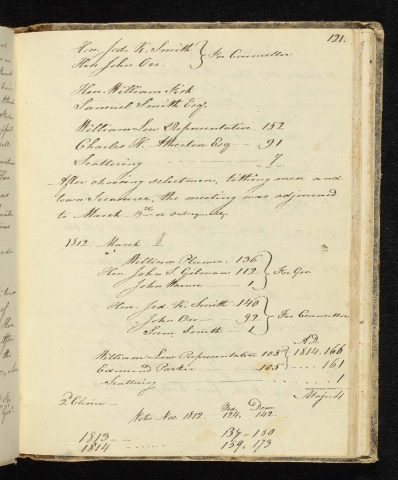 121.
Hon. Jed. K. Smith } For Councellor
Hon. John Orr
Hon. William Fisk
Samuel Smith Esq.
William Low Representative 152
Charles H. Atherton Esq — 91
Scattering — 7
After choosing selectmen, tithing men and
town Treasurer, the meeting was adjourned
to March
1812 March
William Plumer 136
Hon John T. Gilman 112 } For Gov
John 1
Hon. Jed K. Smith 140
John Orr 99 } For Councellor
Sam Smith 1
A.D.
William Low Representative 105 } 1814. 166
Edmund Parker 105 161
Scattering 1
Maj. 4
Votes Nov. 1812. Fed. Dem.
124. 142.
1813 137 - 150
1814 159. 173